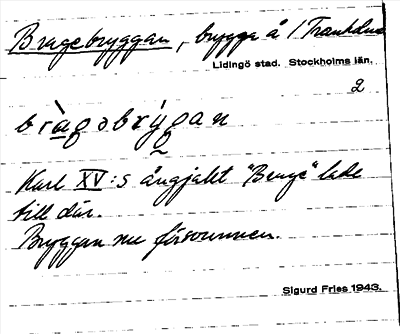 Bragebryggan, brygga å
Lidingö stad. Stockholms län.
2
bràgəbrýgan
Karl XV:s ångjakt "Brage" lade
till där.
Bryggan nu försvunnen.
Sigurd Fries 1943.